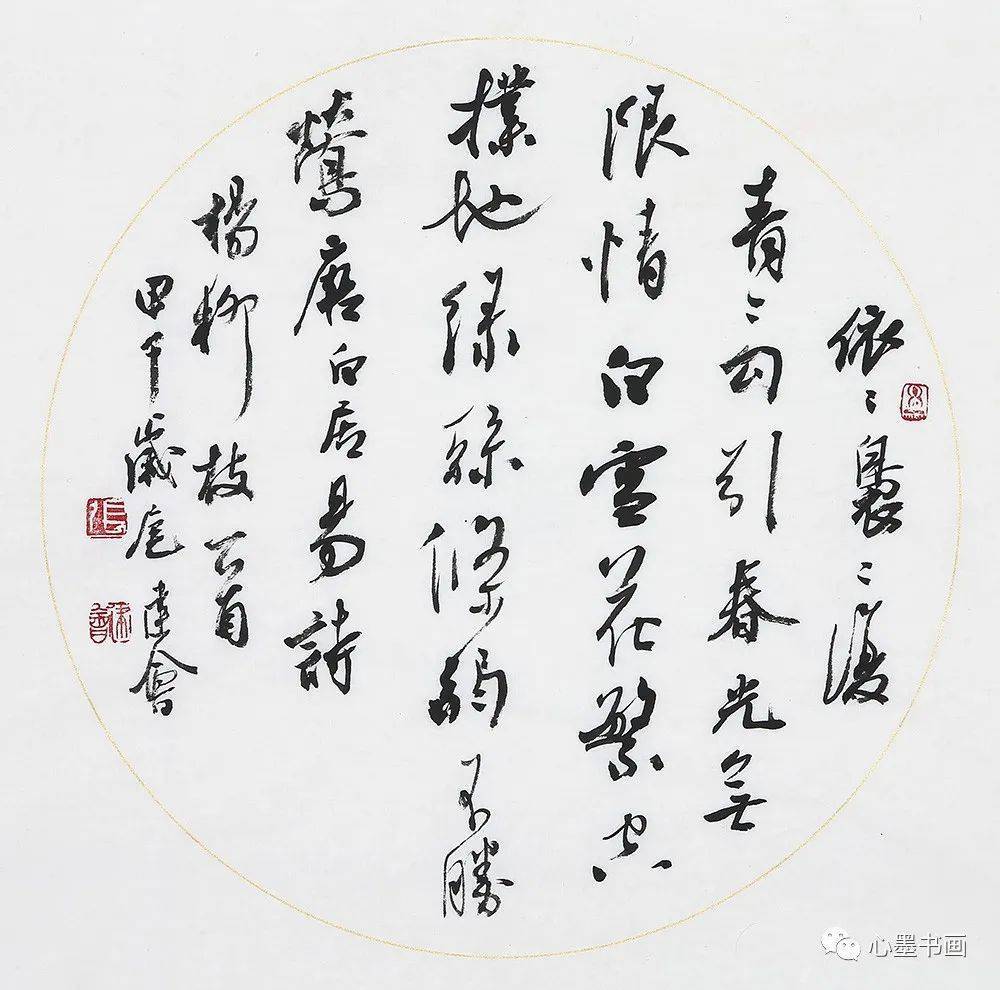 依〻裊〻復
青〻勾引春光無
限情白雪花繁空
撲地綠絲條弱不勝
鶯唐白居易詩
楊柳枝首
甲午歲尾建會
張
心墨书画